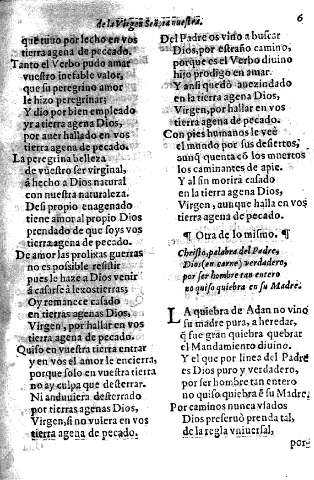 de la Virgen Señora nuestra. 6
que tuuo por lecho en vos
tierra agena de pecado.
Tanto el Verbo pudo amar
vuestro inefable valor,
que su peregrino amor
le hizo peregrinar;
Y dio por bien empleado
yr a tierra agena Dios,
por auer hallado en vos
tierra agena de pecado.
La peregrina belleza
de vuestro ser virginal,
à hecho a Dios natural
con nuestra naturaleza.
De si propio enagenado
tiene amor al propio Dios
prendado de que soys vos
tierra agena de pecado.
De amar las prolixas guerras
no es posible resistir,
pues le haze a Dios venir
à casarse à lexos tierras;
Oy romanece casado
en tierras agenas Dios,
Virgen, por hallar en vos
tierra agena de pecado.
Quiso en vuestra tierra entrar
y en vos el amor le encierra,
porque solo en vuestra tierra
no ay culpa que desterrar.
Ni anduuiera desterrado
por tierras agenas Dios,
Virgen, si no vuiera en vos
tierra agena de pecado.
Del Padre os vino a buscar
Dios, por estraño camino,
porque es el Verbo diuino
hijo prodigo en amar.
Y ansi quedò auezindado
en la tierra agena Dios,
Virgen, por hallar en vos
tierra agena de pecado.
Con pies humanos le veè
el mundo por sus desiertos,
aunq̃ quenta cõ los muertos
los caminantes de apie.
Y al fin morirà casado
en la tierra agena Dios,
Virgen, aunque halla en vos
tierra agena de pecado.
¶ Otra de lo mismo. ¶
Christo, palabra del Padre,
Dios (en carne) verdadero,
por ser hombre tan entero
no quiso quiebra en su Madre.
LA quiebra de Adan no vino
su madre pura, a heredar,
q̃ fue gran quiebra quebrar
el Mandamiento diuino.
Y el que por linea del Padre
es Dios puro y verdadero,
por ser hombre tan entero
no quiso quiebra ẽ su Madre.
Por caminos nunca vsados
Dios preseruò prenda tal,
de la regla vniuersal,
por-